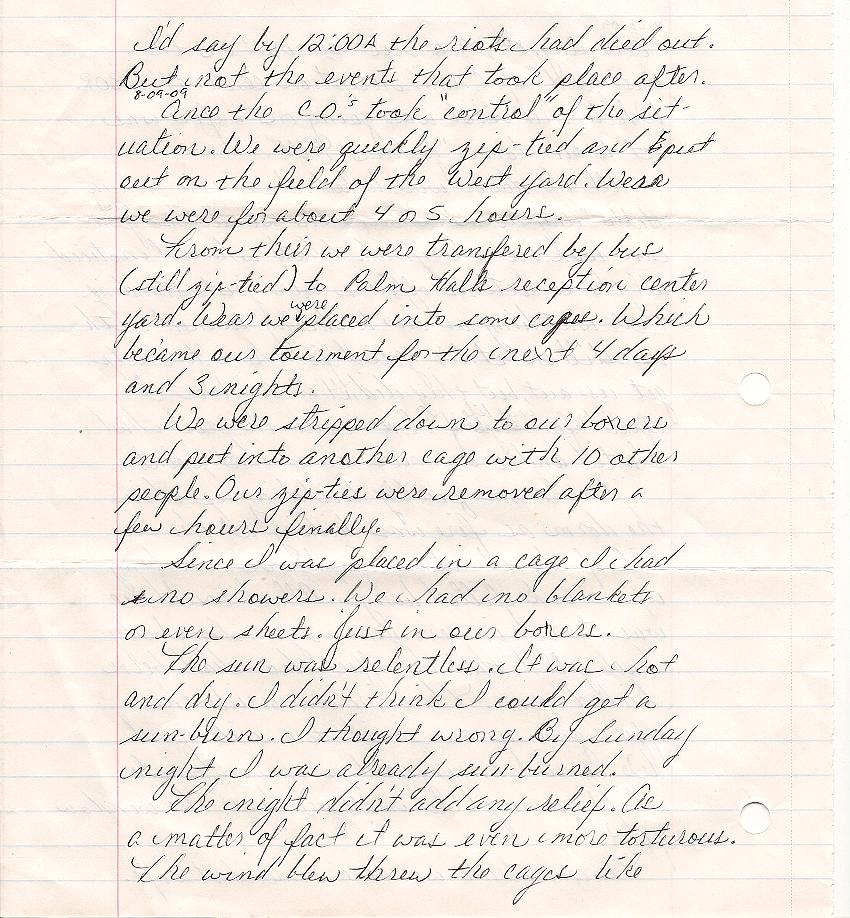 I'd say by 12:00A the riots had died out.
But not the events that took place after.
8-09-09
Once the C.O.'s took "control" of the sit-
uation. We were quickly zip-tied and put
out on the field of the West yard. Wear
we were for about 4 or 5 hours.
From their we were transfered by bus
(still zip-tied) to Palm Halls reception center
yard. Wear we were placed into some cages. Which
became our tourment for the next 4 days
and 3 nights.
We were stripped down to our boxers
and put into another cage with 10 other
people. Our zip-ties were removed after a
few hours finally.
Since I was placed in a cage I had
no showers. We had no blankets
or even sheets. Just in our boxers.
The sun was relentless. It was hot
and dry. I didn't think I could get a
sun-burn. I thought wrong. By Sunday
night I was already sun-burned.
The night didn't add any relief. As
a matter of fact it was even more torturous.
The wind blew threw the cages like